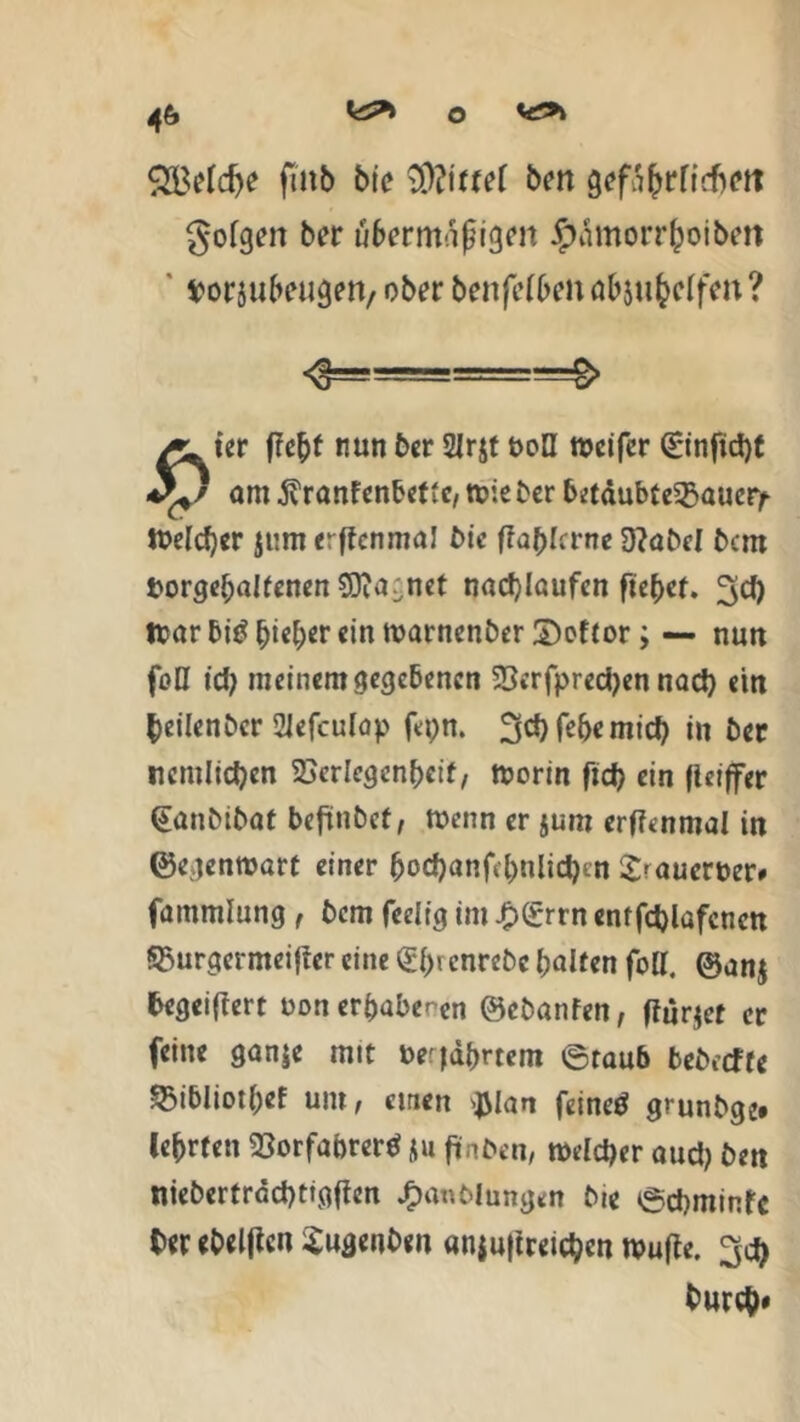 46 o
Welche sind die Mittel den gefährlichen
Folgen der übermäßigen Hämorrhoiden
vorzubeugen, oder denselben abzuhelfen?
Hier steht nun der Arzt voll weiser Einsicht
am Krankenbette, wie der betäubte Bauer,
welcher zum erstenmal die stahlerne Nadel dem
vorgehaltenen Magnet nachlaufen siehet. Ich
war bis hieher ein warnender Doktor; — nun
soll ich meinem gegebenen Versprechen nach ein
heilender Aesculap seyn. Ich sehe mich in der
nemlichen Verlegenheit, worin sich ein steiffer
Candidat befindet, wenn er zum erstenmal in
Gegenwart einer hochansehnlichen Trauerver-
sammlung, dem seelig im HErrn entschlafenen
Burgermeister eine Ehrenrede halten soll. Ganz
begeistert von erhabenen Gedanken, stürzet er
seine ganze mit verjährtem Staub bedeckte
Bibliothek um, einen Plan seines grundge-
lehrten Vorfahrers zu finden, welcher auch den
niederträchtigsten Handlungen die Schminke
der edelsten Tugenden anzustreichen wuste. Ich
durch-